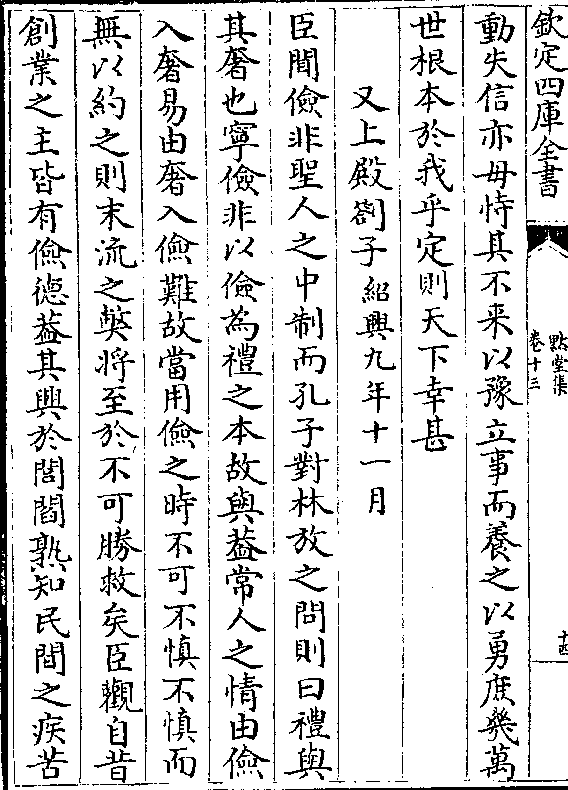 欽定四庫全書
默堂集
卷十三
十四
動失信亦毋恃其不来以豫立事而養之以勇庶幾萬
世根本於我乎定則天下幸甚
又上殿劄子紹興九年十一月
臣聞儉非聖人之中制而孔子對林放之問則曰禮與
其奢也寧儉非以儉為禮之本故與葢常人之情由儉
入奢易由奢入儉難故當用儉之時不可不慎不慎而
無以約之則末流之弊將至於不可勝救矣臣觀自昔
創業之主皆有儉德葢其興於閭閻熟知民間之疾苦